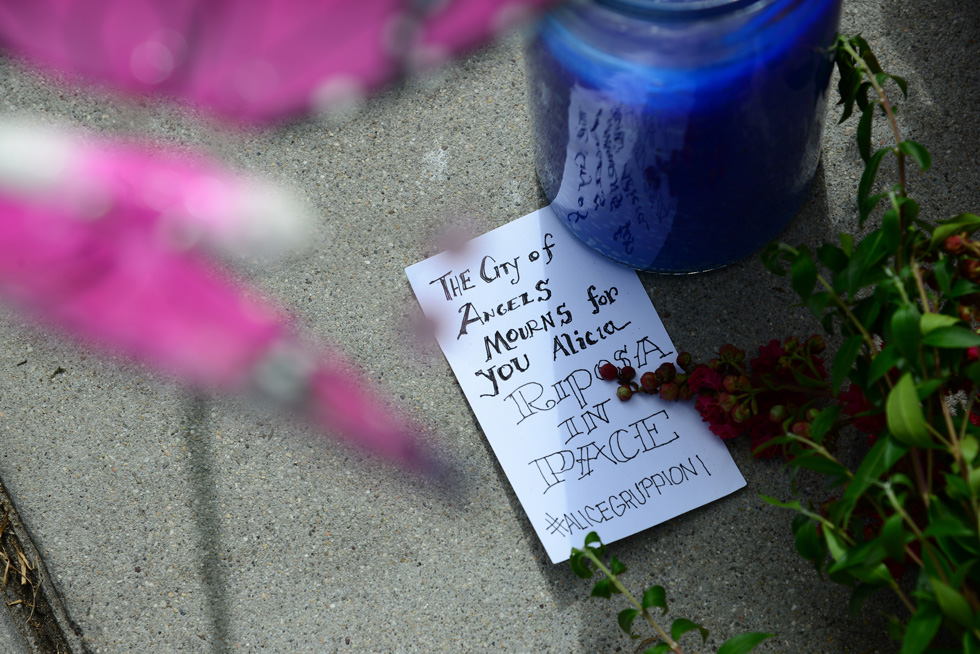 THE CITY of
ANGELS
MOURNS for
YOU Alicia
RIPOSA
IN
PACE
#ALICEGRUPPIONI